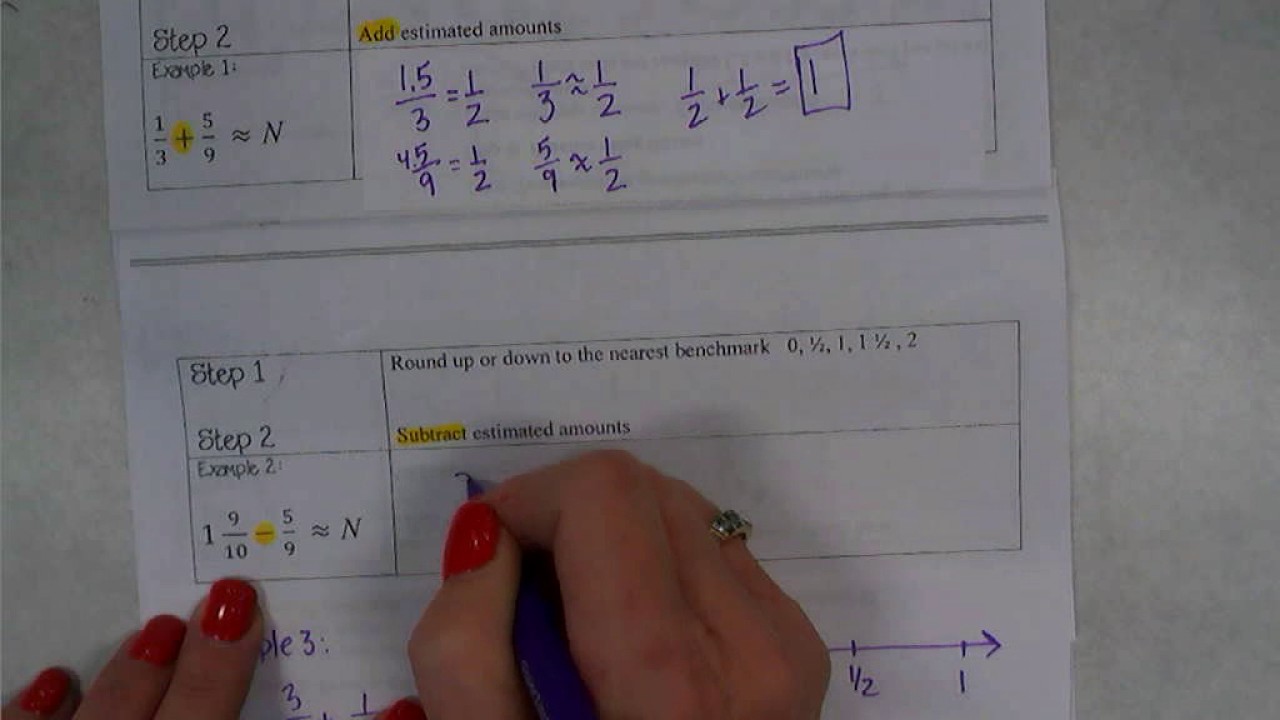 Step 2
Add estimated amounts
Example 1:
1/3 + 5/9 ≈ N
1.5/3 = 1/2 1/3 ≈ 1/2 1/2 + 1/2 = 1
4.5/9 = 1/2 5/9 ≈ 1/2
Step 1
Round up or down to the nearest benchmark 0, ½, 1, 1 ½ , 2
Step 2
Subtract estimated amounts
Example 2:
1 9/10 − 5/9 ≈ N
ple 3:
3 + 1
1/2 1